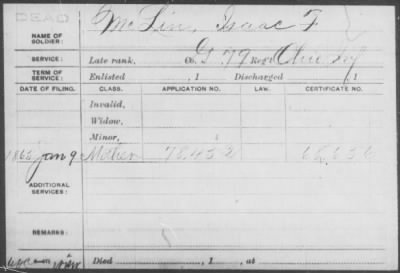 DEAD
NAME OF SOLDIER: McLin, Isaac F
SERVICE: Late rank, Co. G 79 Reg't Ohio Inf
TERM OF SERVICE: Enlisted , 1 Discharged , 1
DATE OF FILING. CLASS. APPLICATION NO. LAW. CERTIFICATE NO.
Invalid,
Widow,
Minor,
1865 Jan 9 Mother 78,452
ADDITIONAL SERVICES:
REMARKS:
Died , 1 , at